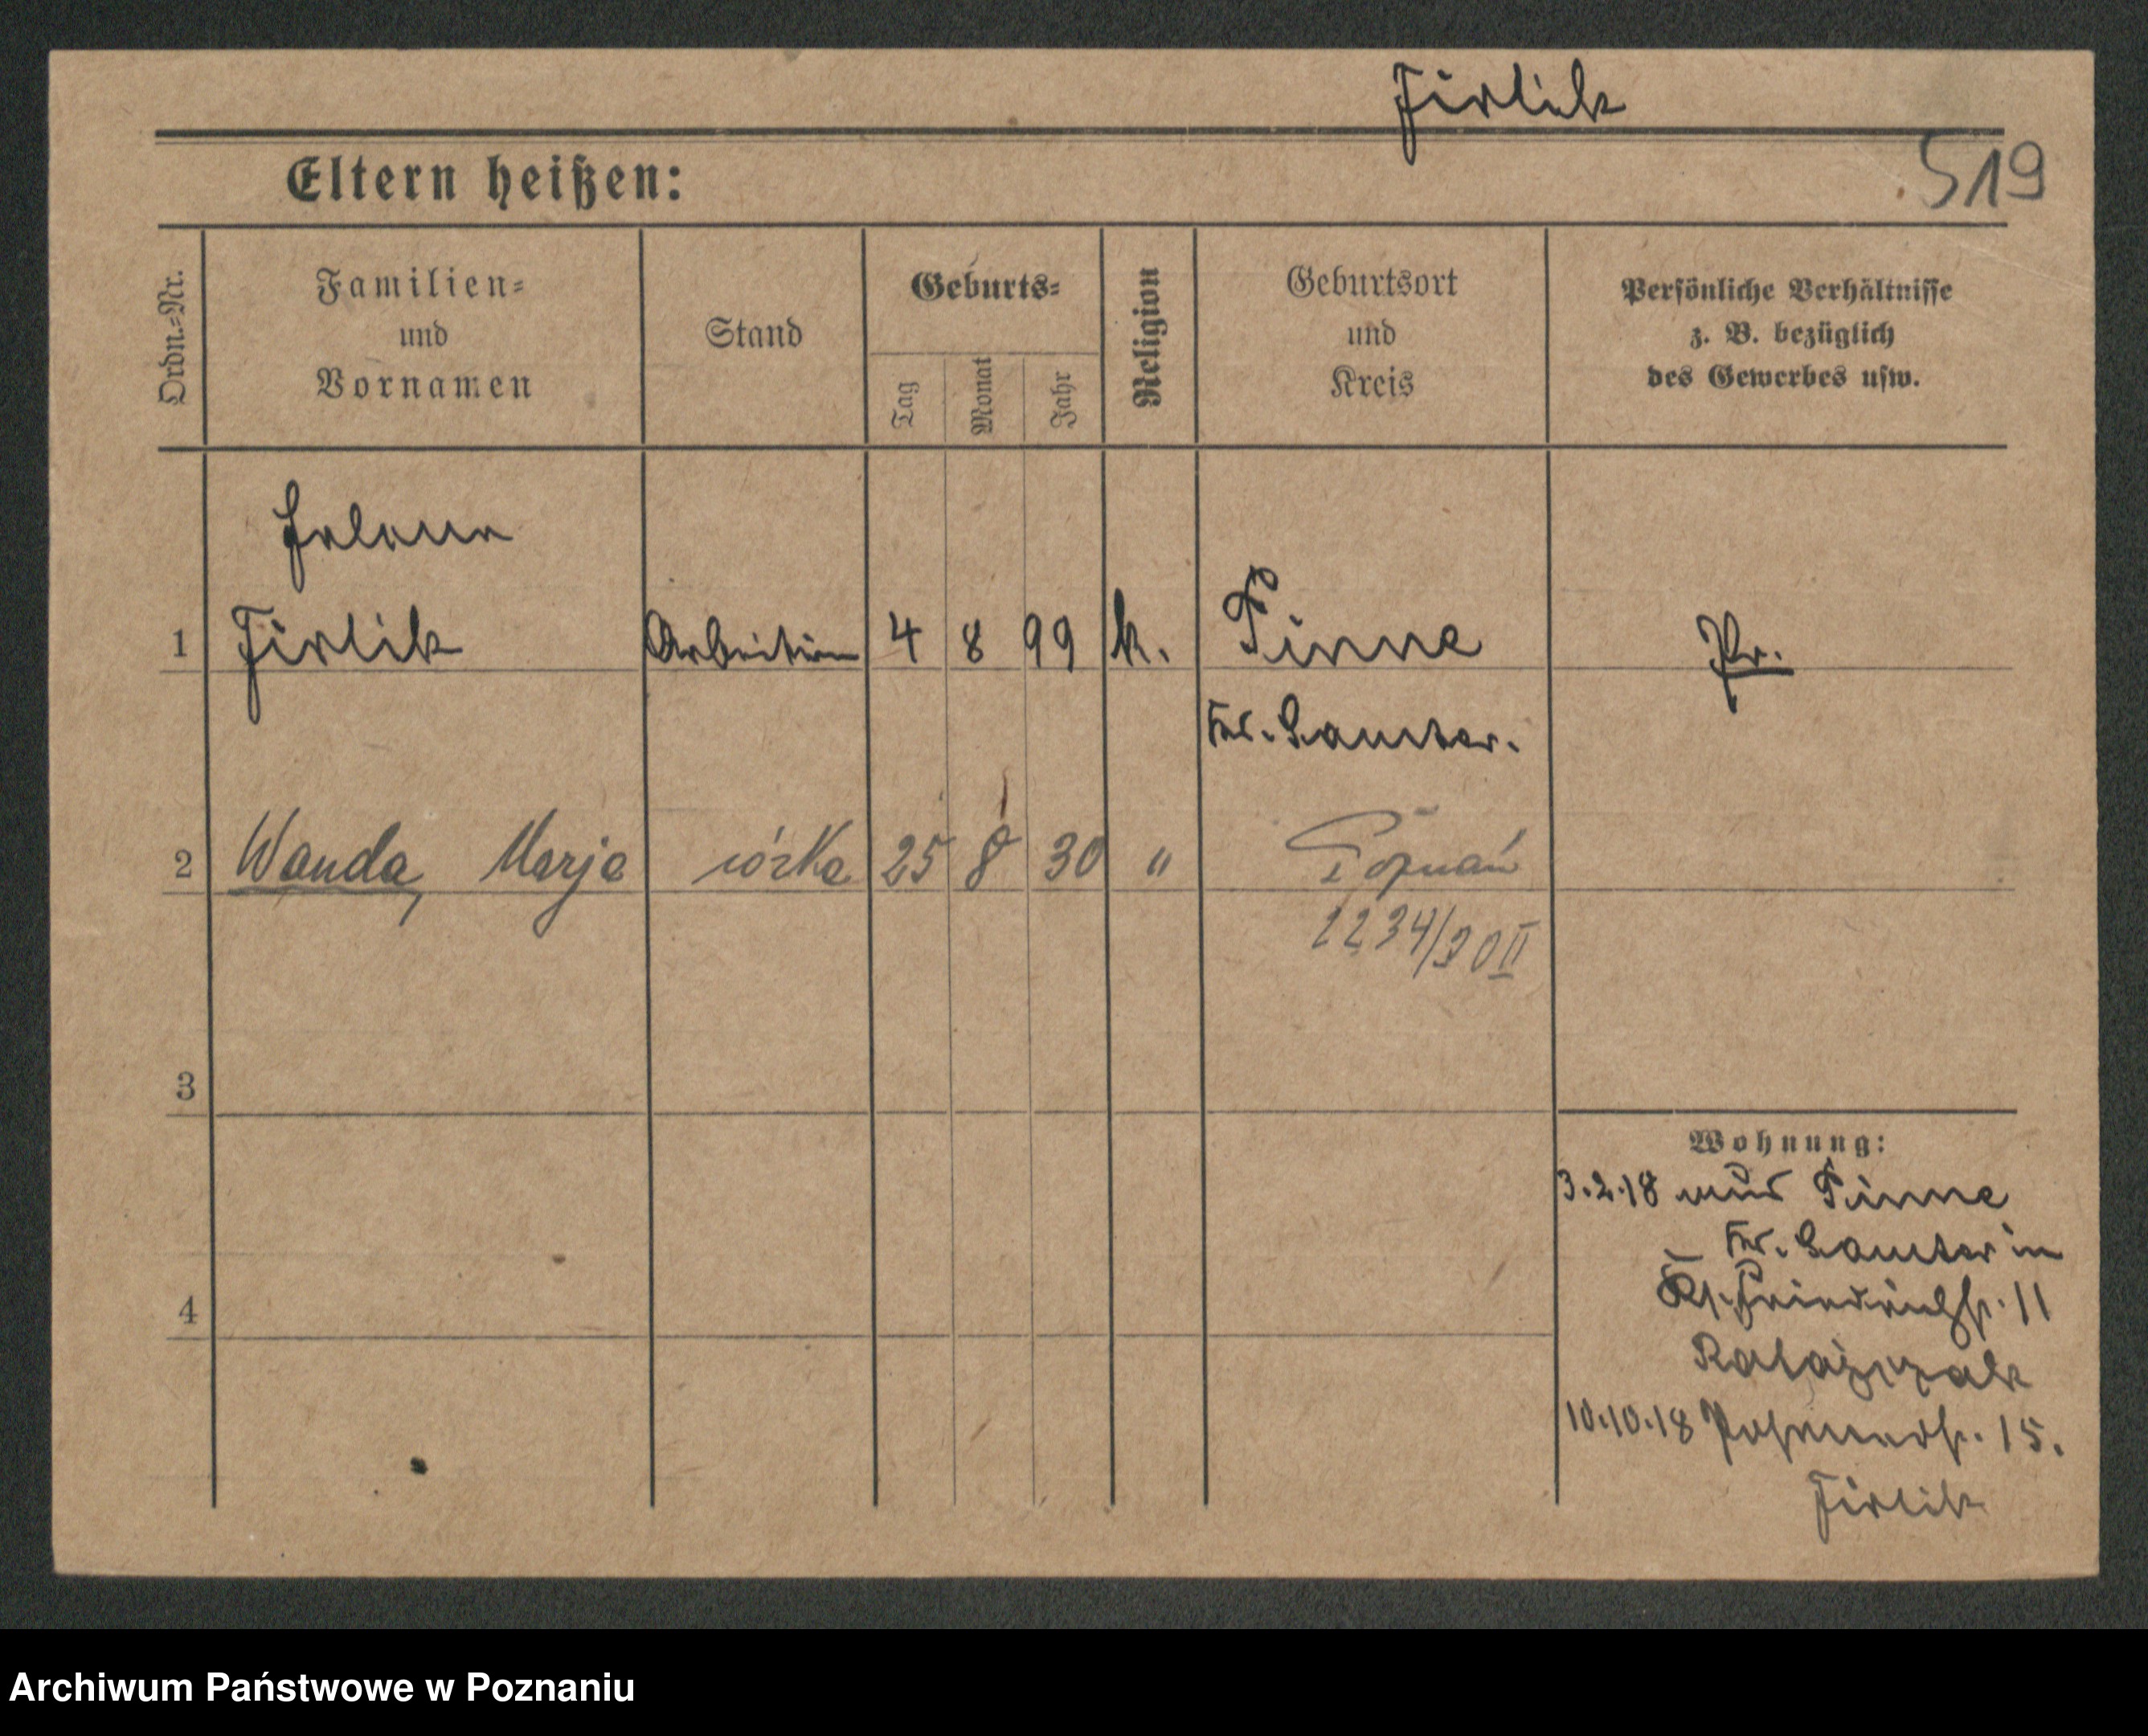 Firlik
519
Eltern heißen:
Ordn.-Nr.
Familien-
und
Vornamen
Stand
Geburts-
Tag
Monat
Jahr
Religion
Geburtsort
und
Kreis
Persönliche Verhältnisse
z. B. bezüglich
des Gewerbes usw.
Helena
1 Firlik Arbeiterin 4 8 99 k. Pinne Pr.
Kr. Samter.
2 Wanda, Marja córka 25 8 30 " Poznań
2234/30 II
3
Wohnung:
3.2.18 aus Pinne
Kr. Samter in
4
Friedrichstr. 11
Ratajczak
10.10.18 15.
Firlik
Archiwum Państwowe w Poznaniu